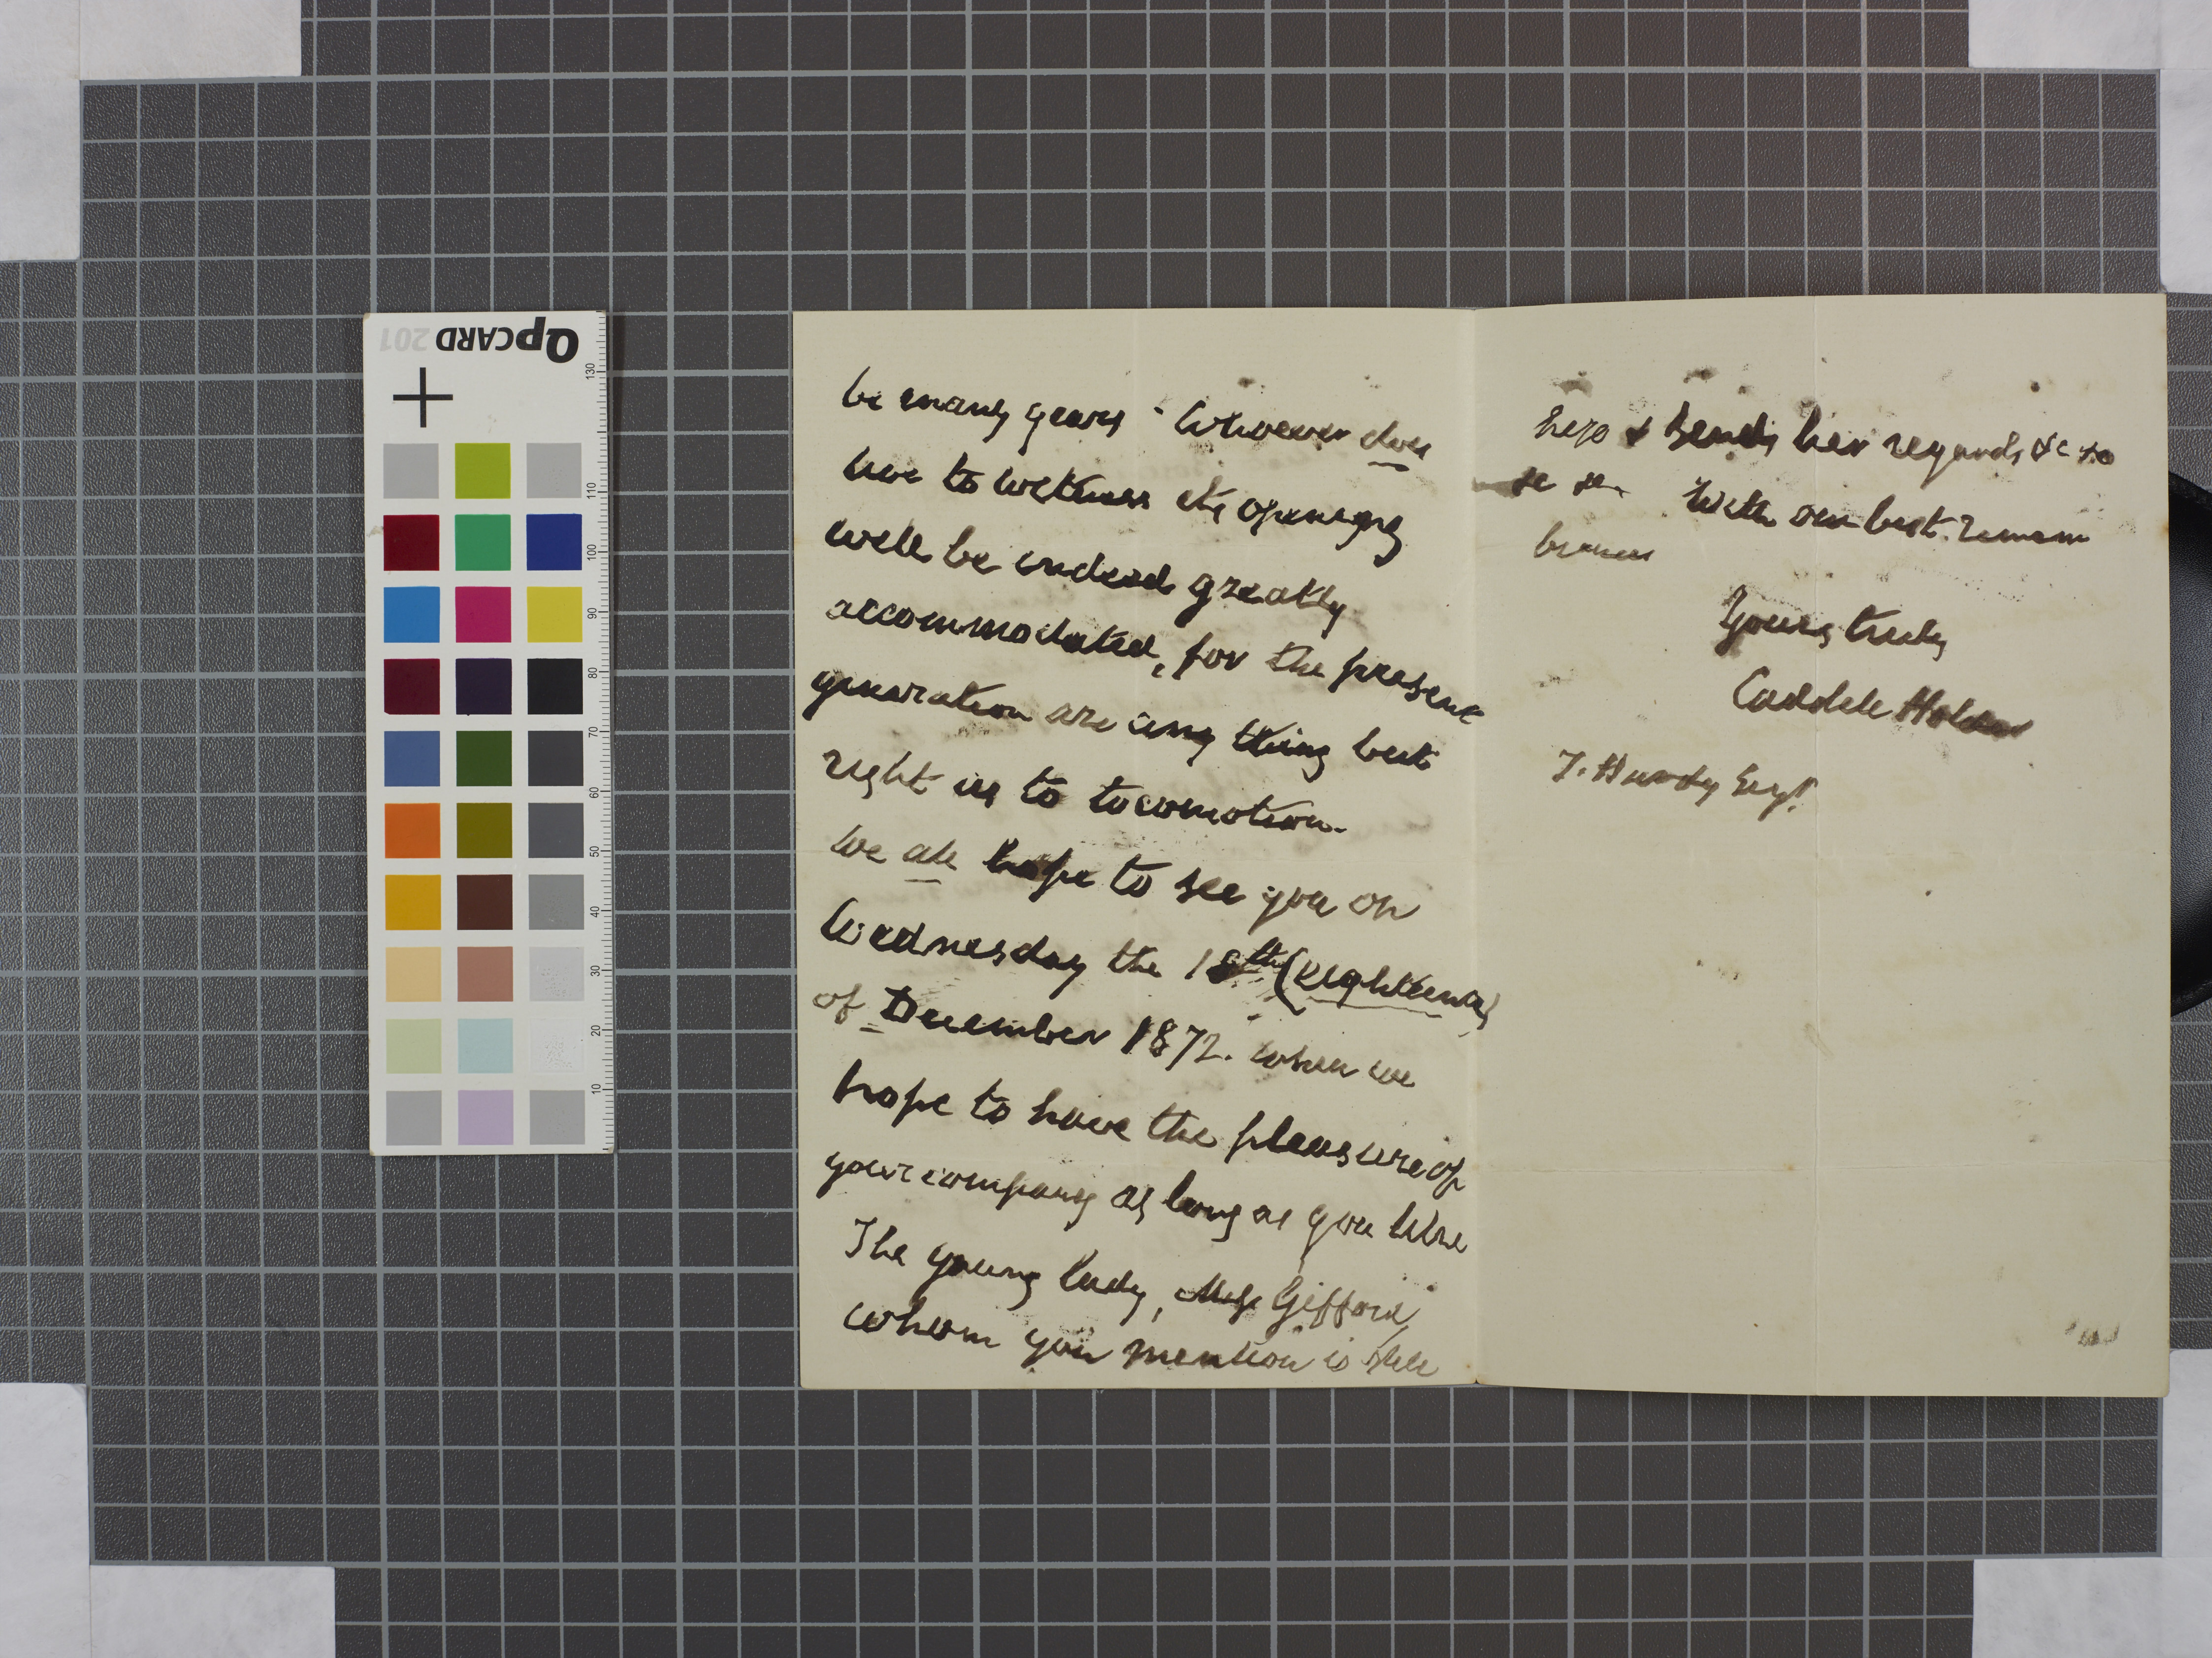 QPCARD 201
130
110
100
90
80
70
60
50
40
30
20
10
be many years - Whoever does
live to witness its opening
will be indeed greatly
accommodated, for the present
generation are any thing but
right as to locomotion.
We all hope to see you on
Wednesday the 18th (eighteenth)
of December 1872. when we
hope to have the pleasure of
your company as long as you like
The young lady, Miss Gifford,
whom you mention is still
here & sends her regards &c &c
&c &c. With our best remem
brances
Yours truly
Caddell Holder
T. Hardy Esqr.